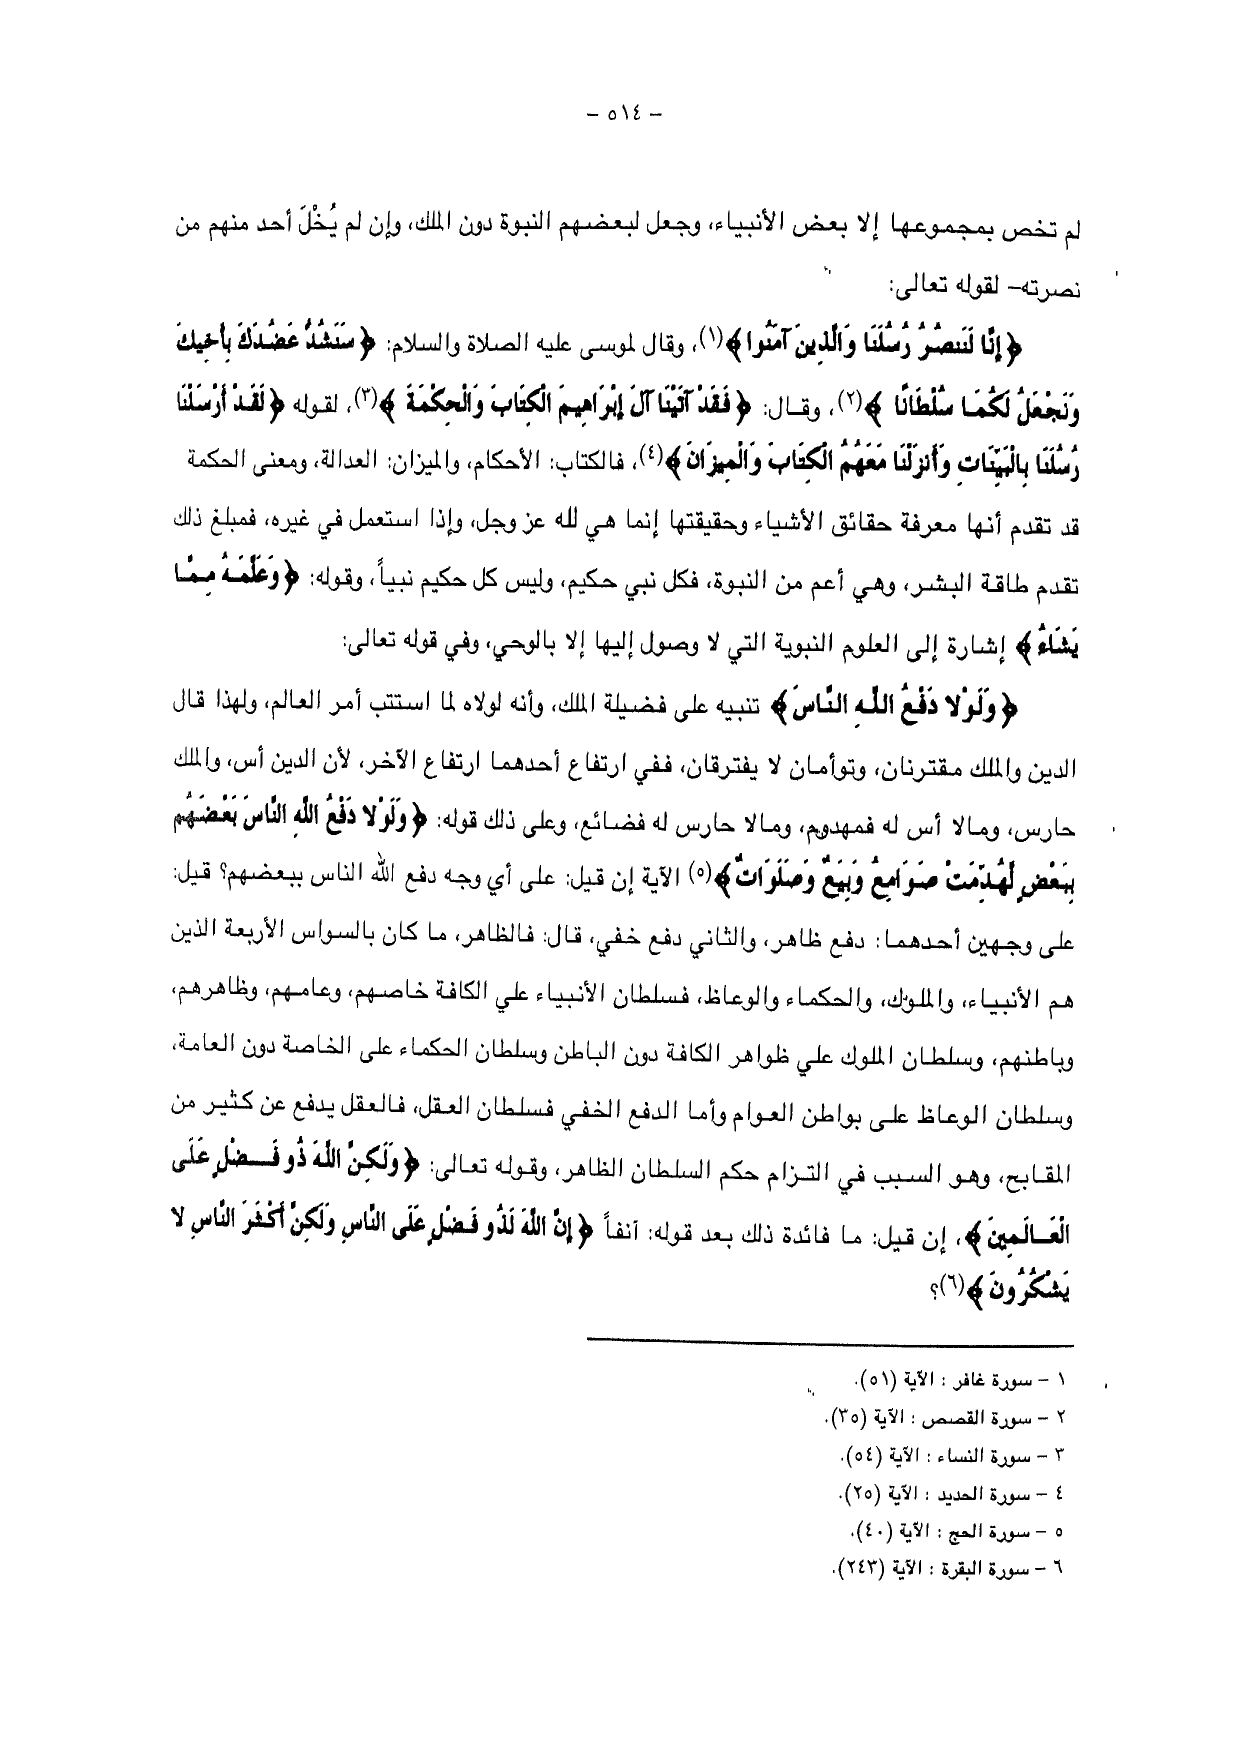 – ٥١٤ –
لم تخص بمجموعها إلا بعض الأنبياء، وجعل لبعضهم النبوة دون الملك، وإن لم يُخْلَ أحد منهم من
نصرته– لقوله تعالى:
﴿إِنَّا لَنَنصُرُ رُسُلَنَا وَالَّذِينَ آمَنُوا﴾(١)، وقال لموسى عليه الصلاة والسلام: ﴿سَنَشُدُّ عَضُدَكَ بِأَخِيكَ
وَنَجْعَلُ لَكُمَا سُلْطَانًا﴾(٢)، وقال: ﴿فَقَدْ آتَيْنَا آلَ إِبْرَاهِيمَ الْكِتَابَ وَالْحِكْمَةَ﴾(٣)، لقوله ﴿لَقَدْ أَرْسَلْنَا
رُسُلَنَا بِالْبَيِّنَاتِ وَأَنزَلْنَا مَعَهُمُ الْكِتَابَ وَالْمِيزَانَ﴾(٤)، فالكتاب: الأحكام، والميزان: العدالة، ومعنى الحكمة
قد تقدم أنها معرفة حقائق الأشياء وحقيقتها إنما هي لله عز وجل، وإذا استعمل في غيره، فمبلغ ذلك
تقدم طاقة البشر، وهي أعم من النبوة، فكل نبي حكيم، وليس كل حكيم نبياً، وقوله: ﴿وَعَلَّمَهُ مِمَّا
يَشَاءُ﴾ إشارة إلى العلوم النبوية التي لا وصول إليها إلا بالوحي، وفي قوله تعالى:
﴿وَلَوْلا دَفْعُ اللَّهِ النَّاسَ﴾ تنبيه على فضيلة الملك، وأنه لولاه لما استتب أمر العالم، ولهذا قال
الدين والملك مقترنان، وتوأمان لا يفترقان، ففي ارتفاع أحدهما ارتفاع الآخر، لأن الدين أس، والملك
حارس، ومالا أس له فمهدوم، ومالا حارس له فضائع، وعلى ذلك قوله: ﴿وَلَوْلا دَفْعُ اللَّهِ النَّاسَ بَعْضَهُم
بِبَعْضٍ لَهُدِّمَتْ صَوَامِعُ وَبِيَعٌ وَصَلَوَاتٌ﴾(٥) الآية إن قيل: على أي وجه دفع الله الناس ببعضهم؟ قيل:
على وجهين أحدهما: دفع ظاهر، والثاني دفع خفي، قال: فالظاهر، ما كان بالسواس الأربعة الذين
هم الأنبياء، والملوك، والحكماء والوعاظ، فسلطان الأنبياء علي الكافة خاصهم، وعامهم، وظاهرهم،
وباطنهم، وسلطان الملوك علي ظواهر الكافة دون الباطن وسلطان الحكماء على الخاصة دون العامة،
وسلطان الوعاظ على بواطن العوام وأما الدفع الخفي فسلطان العقل، فالعقل يدفع عن كثير من
المقابح، وهو السبب في التزام حكم السلطان الظاهر، وقوله تعالى: ﴿وَلَكِنَّ اللَّهَ ذُو فَضْلٍ عَلَى
الْعَالَمِينَ﴾، إن قيل: ما فائدة ذلك بعد قوله: آنفاً ﴿إِنَّ اللَّهَ لَذُو فَضْلٍ عَلَى النَّاسِ وَلَكِنَّ أَكْثَرَ النَّاسِ لا
يَشْكُرُونَ﴾(٦)؟
١ – سورة غافر : الآية (٥١).
٢ – سورة القصص : الآية (٣٥).
٣ – سورة النساء : الآية (٥٤).
٤ – سورة الحديد : الآية (٢٥).
٥ – سورة الحج : الآية (٤٠).
٦ – سورة البقرة : الآية (٢٤٣).